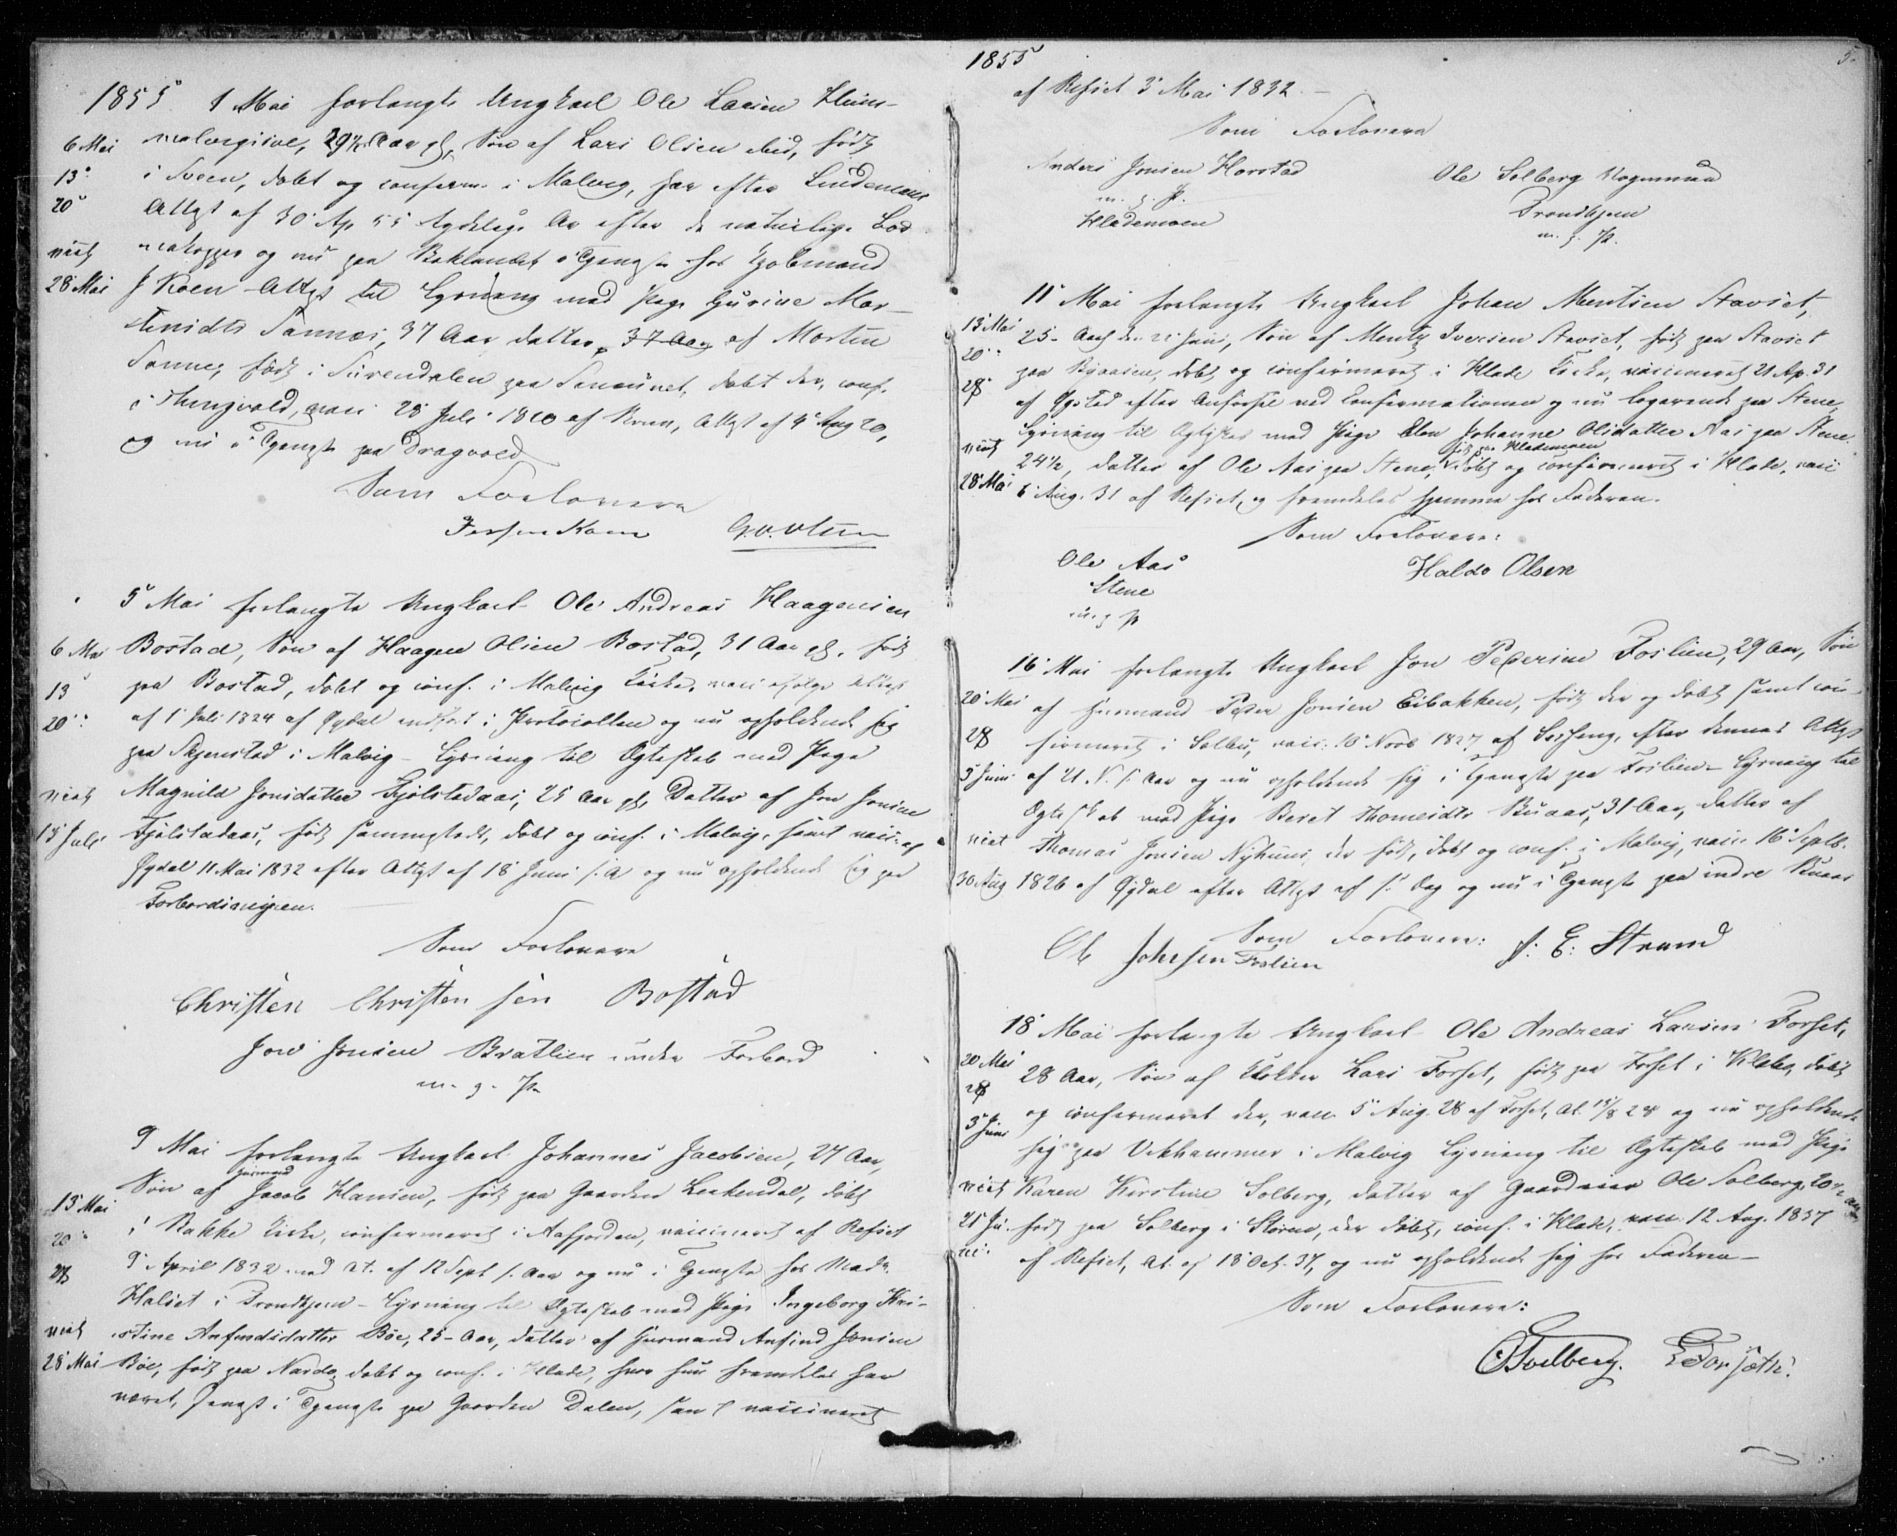 1855. 1 Mai forlangte Ungkarl Ole Larsen Hum-
6 Mai melvigsvel, 29½ Aar gl, Søn af Lars Olsen ibid, født
13" i Sveen, døbt og conferm. i Malvig, har efter Lindemans
20" Attest af 30 Ap. 55 tydelige Ar efter de naturlige Bør
viet nekopper og nu paa Baklandet i Tjeneste hos Kjøbmand
28 Mai J Koen Attest til Lysning med Pige Gurine Mor-
tensdtr Sannes, 37 Aar, datter 37 Aar af Morten
Sannes, født i Surendalen paa døbt der, conf.
i Thingvold, vacc. 28 Juli 1820 af Attest af 4 Aug 20,
og nu i Tjeneste paa Dragvold
Som Forlovere
Koen G. O. Olsen
5 Mai forlangte Ungkarl Ole Andreas Haagensen
6 Mai Bostad, Søn af Haagen Olsen Bostad, 31 Aar gl. født
13 paa Bostad, døbt og conf. i Malvig Kirke, vacc. ifølge Attest
20" af 1 Juli 1824 af Gydal indført i Protocollen og nu opholdende sig
paa Skjenstad i Malvig - Lysning til Ægteskab med Pige
viet Magnild Jonsdatter Fjølstadaas, 25 Aar gl, Datter af Jon Jonsen
15 Juli Fjølstadaas, født sammestedt, døbt og conf. i Malvig, samt vacc. af
Gydal 11 Mai 1832 efter Attest af 18 Juni s. A og nu opholdende sig paa
Forbord
Som Forlovere
Christen Christensen Bostad
Jon Jonsen Bratlien under Forbord
m. g. P.
9 Mai forlangte Ungkarl Johannes Jacobsen, 27 Aar,
Husmand
Søn af Jacob Hansen, født paa Gaarden Leerendal, døbt
13 Mai i Bakke Kirke, confirmeret i Aafjorden, vaccineret af Refset
20" 9 April 1832 med At. af 12 Sept s. Aar og nu i Tjeneste hos Mad.
28 Halset i Trondhjem - Lysning til Ægteskab med Pige Ingeborg Kri-
viet stine Anfindsdatter Bøe, 25 Aar, datter af Husmand Anfind Jonsen
28 Mai Bøe, født paa Nardo, døbt og conf. i Hlade, hvor hun fremdeles har
været, senest i Tjeneste paa Gaarden Dalen, samt vaccineret
1855 5.
af Refset 3 Mai 1832. -
Som Forlovere
Anders Jonsen Harstad Ole Solberg Vognmand
m. g. P. Trondhjem
Hlademoen m. g. P.
11 Mai forlangte Ungkarl Johan Mentsen Stavset,
13 Mai 25 Aar den Juni, Søn af Mentz Iversen Stavset, født paa Stavset
20" paa Byaasen, døbt og confirmeret i Hlade Kirke, vaccineret 21 Ap. 31
28 af Opstad efter Anførsel ved Confirmationen og nu logerende paa Stene,
Lysning til Ægteskab med Pige Elen Johanne Olsdatter Aas paa Stene
født paa Hlademoen
viet 24½, datter af Ole Aas paa Stene, døbt og confirmeret i Hlade, vacc
28 Mai 6 Aug. 31 af Refset, og fremdeles hjemme hos Faderen.
Som Forlovere:
Ole Aas Haldo Olsen
Stene
m. g. P
16 Mai forlangte Ungkarl Jon Pedersen Foslien, 29 Aar, Søn
20 Mai af Husmand Peder Jonsen Eibakken, født der og døbt samt con-
28 firmeret i Selbu, vacc. 10 Novb 1827 af efter dennes Attest
3 Juni af 21 N. s. Aar og nu opholdende sig i Tjeneste paa Foslien Lysning til
Ægteskab med Pige Beret Thomesdtr Buaas, 31 Aar, datter af
viet Thomas Jonsen Nyhuus, der født, døbt og conf. i Malvig, vacc 16 Septb.
30 Aug 1826 af Gydal efter Attest af s. Dag og nu i Tjeneste paa indre Buaas
Som Forlovere:
Ole Johnsen Foslien J. E. Strand
18 Mai forlangte Ungkarl Ole Andreas Larsen Forset,
20 Mai 28 Aar, Søn af Klokker Lars Forset, født paa Forset i Klæbu, døbt
28
3 Juni og confermeret der, vacc. 5 Aug. 28 af Forset, At. 15/8 28 og nu opholdende
sig paa Vikhammer i Malvig Lysning til Ægteskab med Pige
viet Karen Kirstine Solberg, datter af Gaardeier Ole Solberg, 20½ Aar
født paa Solberg i Støren, der døbt, conf. i Hlade, vacc. 12 Aug. 1837
af Refset, At. af 18 Oct. 37, og nu opholdende sig hos Faderen -
Som Forlovere:
O Solberg. L Forsæth.